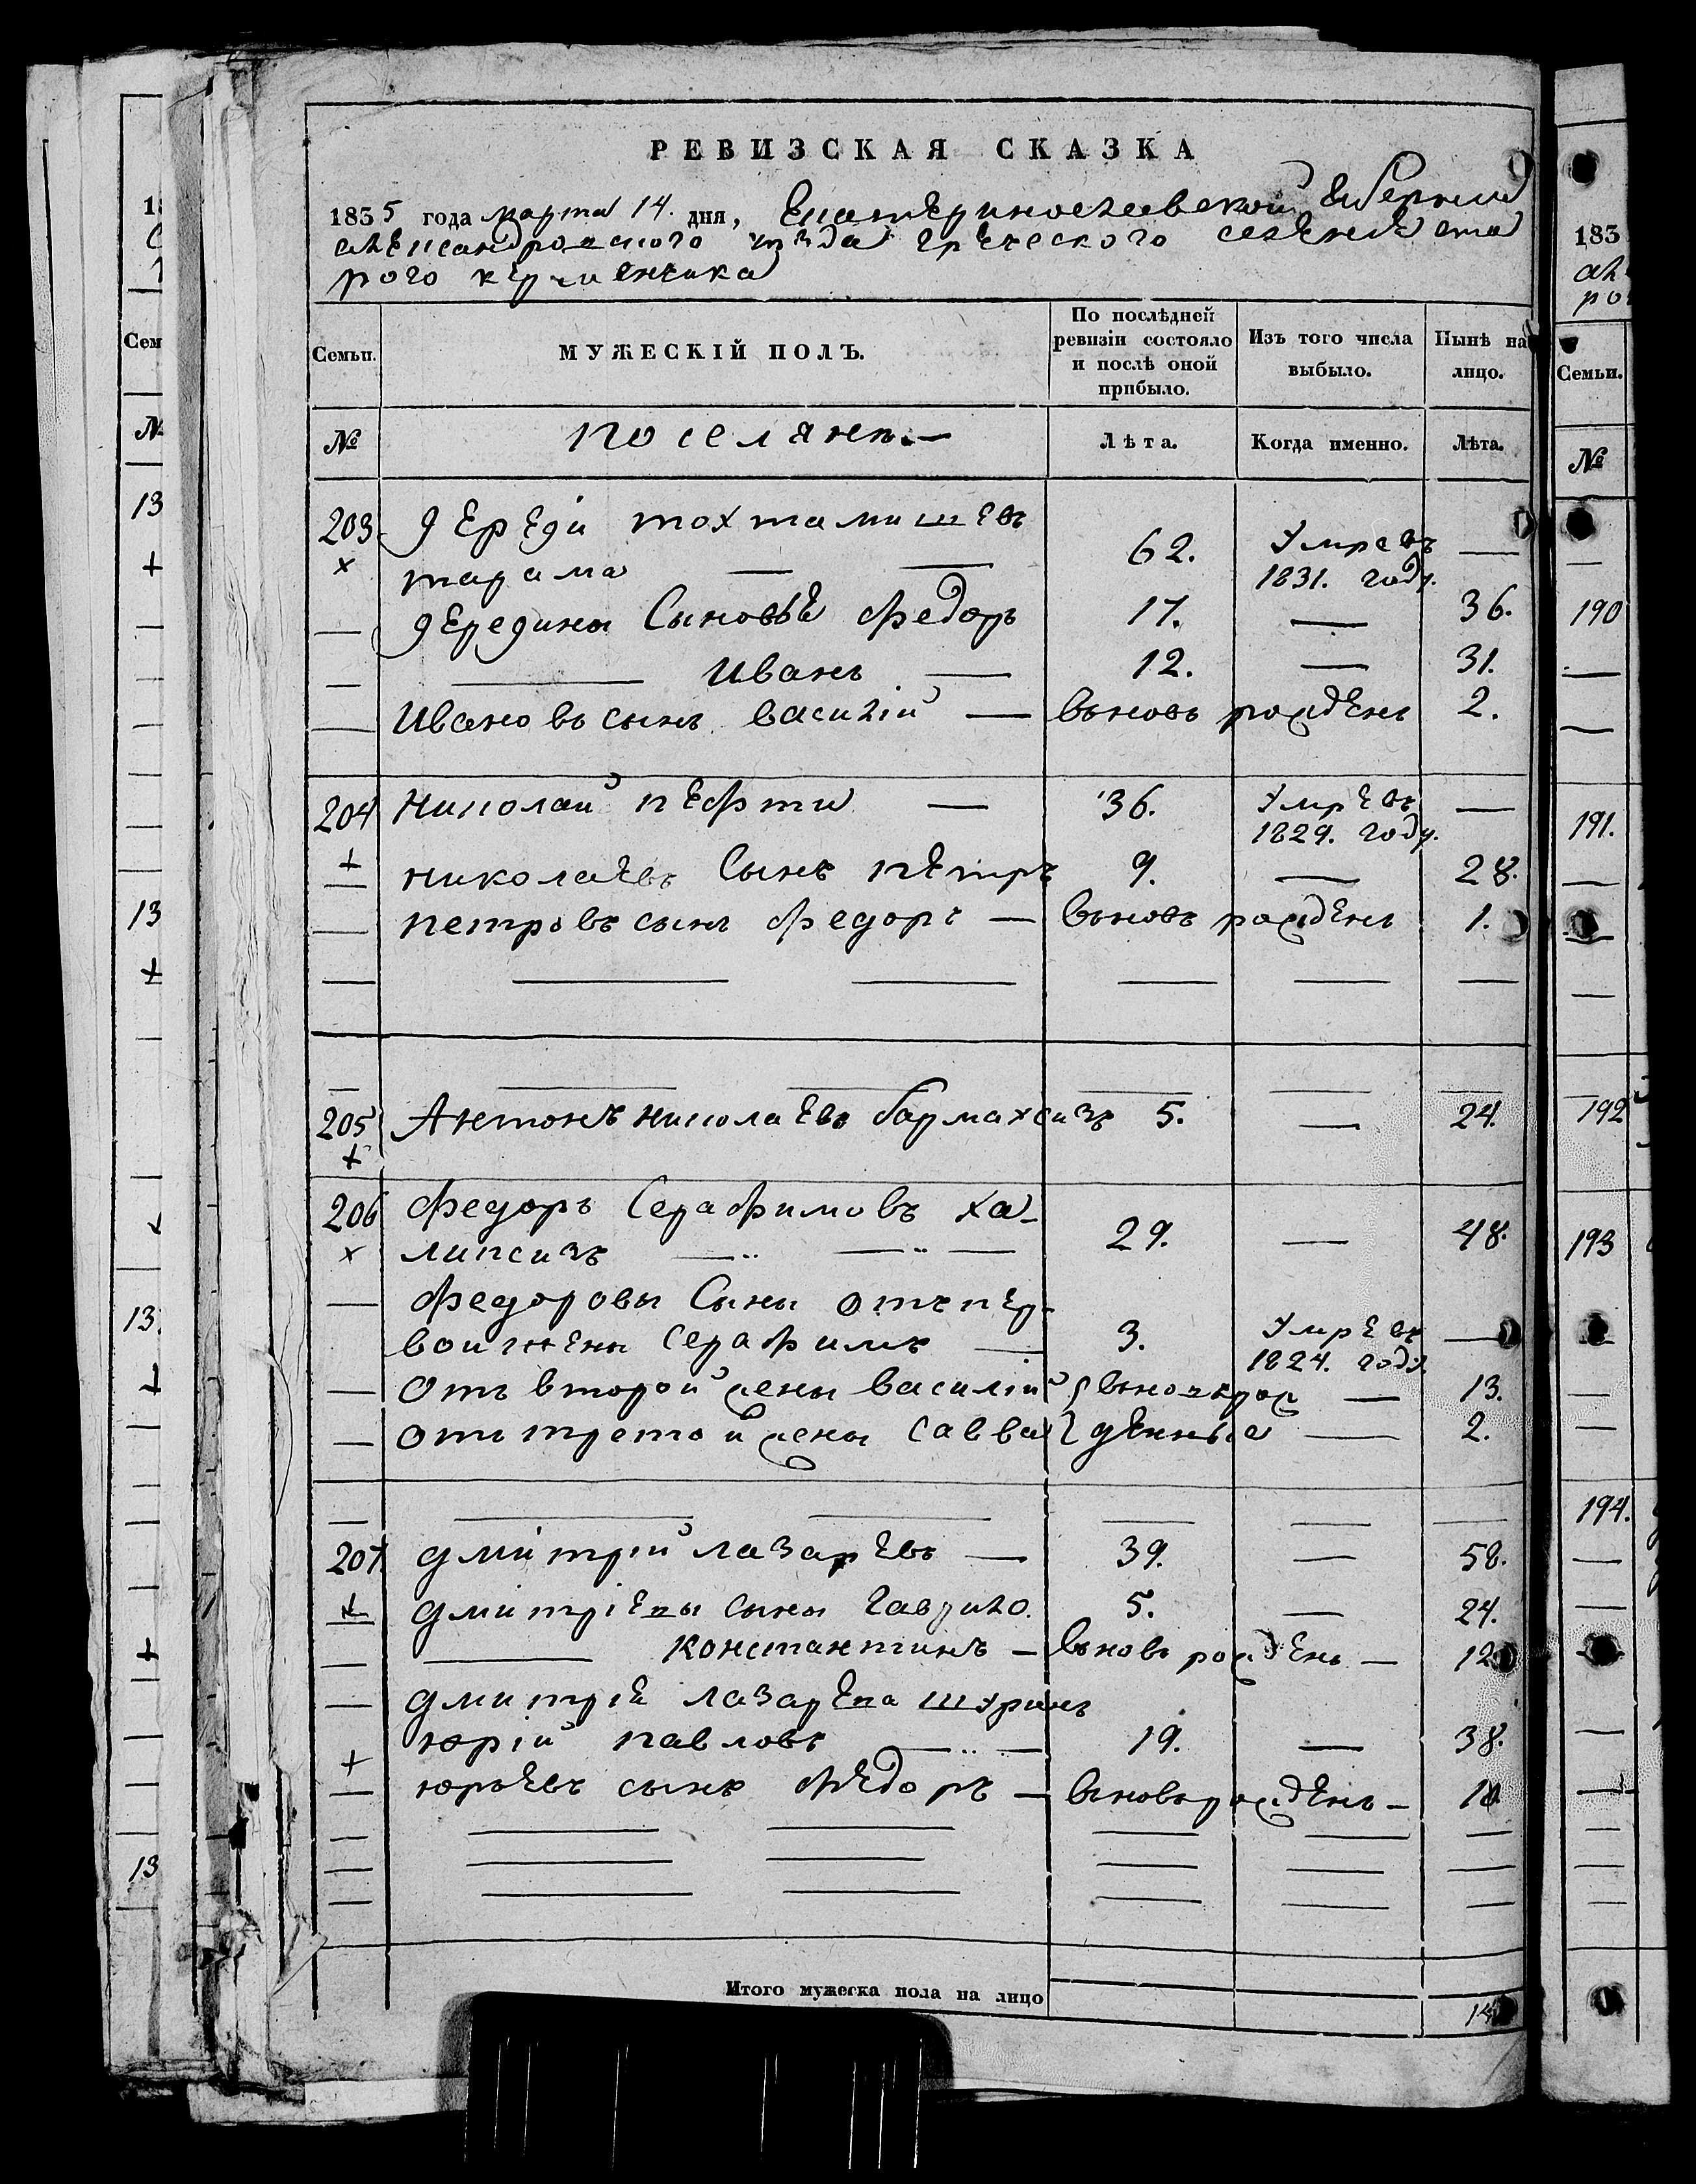 РЕВИЗСКАЯ СКАЗКА
1835 года марта 14. дня, Екатеринославской Губернии
александровского уезда греческого селения ста
рого керменчика
Семьи. МУЖЕСКІЙ ПОЛЪ. По послѣдней ревизіи состояло и послѣ оной прибыло. Изъ того числа выбыло. Нынѣ на лицо.
№ поселяне.— Лѣта. Когда именно. Лѣта.
203. дереди тохтамишевъ
тарама — — 62. Умре въ 1831. году. —
— дередины Сыновье федоръ 17. — 36.
— — Иванъ — 12. — 31.
— Ивановъ сынъ василій — вьновь рожденъ 2.
204 николай пефти — 36. Умре въ 1829. году. —
— николаевъ Сынъ петръ 9. — 28.
— петровъ сынъ федоръ — вьновь рожденъ 1.
205 Антонъ николаевъ бармахсизъ 5. — 24.
206 федоръ Серафимовъ ха-
липсизъ — — 29. — 48.
— федоровы Сыны отъ пер-
вои жены серафимъ — 3. Умре въ 1824. году. —
— отъ второй жены василій вьновьрож — 13.
— отъ третой жены савва денные — 2.
207 дмитрій лазаревъ — 39. — 58.
дмитріевы сыны гаврило. 5. — 24.
— — константинъ — вьновь рожденъ — 12
— дмитрій лазарева шуринъ
юрій павловъ — 19. — 38.
— юрьевъ сынъ федоръ — вьновьрожденъ — 10
Итого мужеска пола на лицо
183
Семьи.
№
190
191.
192
193
194.
Сем
№
13
13
13
13